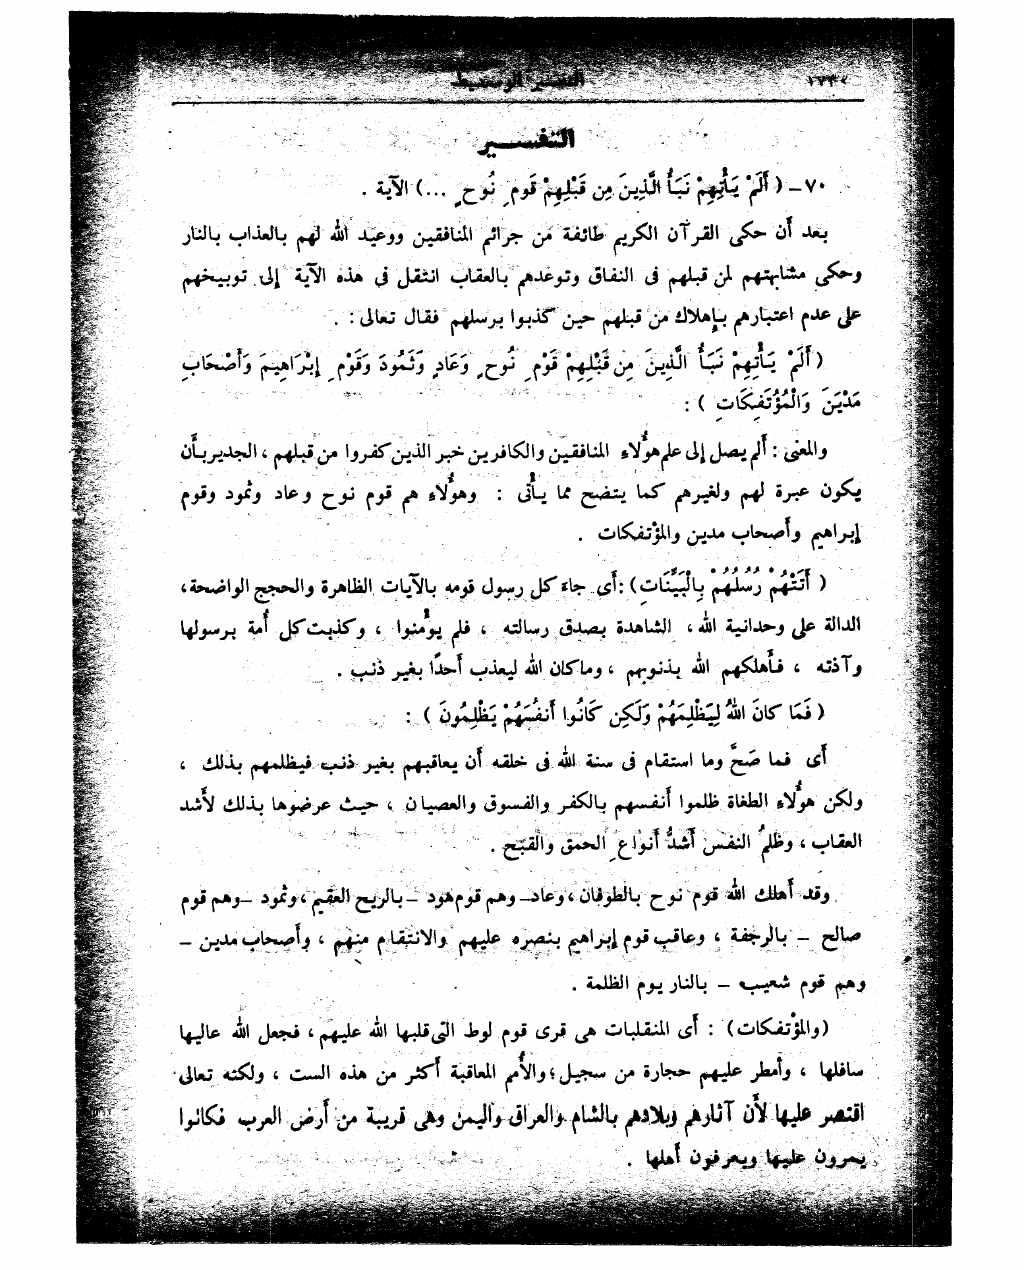 التفسير الوسيط
التفسير
٧٠ – ( أَلَمْ يَأْتِهِمْ نَبَأُ الَّذِينَ مِن قَبْلِهِمْ قَوْمِ نُوحٍ ... ) الآية .
بعد أن حكى القرآن الكريم طائفة من جرائم المنافقين ووعيد الله لهم بالعذاب بالنار
وحكى مشابهتهم لمن قبلهم فى النفاق وتوعدهم بالعقاب انتقل فى هذه الآية إلى توبيخهم
على عدم اعتبارهم بإهلاك من قبلهم حين كذبوا برسلهم فقال تعالى : .
( أَلَمْ يَأْتِهِمْ نَبَأُ الَّذِينَ مِن قَبْلِهِمْ قَوْمِ نُوحٍ وَعَادٍ وَثَمُودَ وَقَوْمِ إِبْرَاهِيمَ وَأَصْحَابِ
مَدْيَنَ وَالْمُؤْتَفِكَاتِ ) :
والمعنى : ألم يصل إلى علم هؤلاء المنافقين والكافرين خبر الذين كفروا من قبلهم ، الجدير بأن
يكون عبرة لهم ولغيرهم كما يتضح مما يأتى : وهؤلاء هم قوم نوح وعاد وثمود وقوم
إبراهيم وأصحاب مدين والمؤتفكات .
( أَتَتْهُمْ رُسُلُهُمْ بِالْبَيِّنَاتِ ) : أى جاء كل رسول قومه بالآيات الظاهرة والحجج الواضحة ،
الدالة على وحدانية الله ، الشاهدة بصدق رسالته ، فلم يؤمنوا ، وكذبت كل أمة برسولها
وآذته ، فأهلكهم الله بذنوبهم ، وما كان الله ليعذب أحدًا بغير ذنب .
( فَمَا كَانَ اللهُ لِيَظْلِمَهُمْ وَلَكِن كَانُوا أَنفُسَهُمْ يَظْلِمُونَ ) :
أى فما صَحَّ وما استقام فى سنة الله فى خلقه أن يعاقبهم بغير ذنب فيظلمهم بذلك ،
ولكن هؤلاء الطغاة ظلموا أنفسهم بالكفر والفسوق والعصيان ، حيث عرضوها بذلك لأشد
العقاب ، وظلمُ النفس أشدُّ أنواعِ الحمق والقبح .
وقد أهلك الله قوم نوح بالطوفان ، وعاد – وهم قوم هود – بالريح العقيم ، وثمود – وهم قوم
صالح – بالرجفة ، وعاقب قوم إبراهيم بنصره عليهم والانتقام منهم ، وأصحاب مدين –
وهم قوم شعيب – بالنار يوم الظلمة .
(والمؤتفكات) : أى المنقلبات هى قرى قوم لوط التى قلبها الله عليهم ، فجعل الله عاليها
سافلها ، وأمطر عليهم حجارة من سجيل ؛ والأُمم المعاقبة أكثر من هذه الست ، ولكنه تعالى
اقتصر عليها لأن آثارهم وبلادهم بالشام والعراق واليمن وهى قريبة من أرض العرب فكانوا
يمرون عليها ويعرفون أهلها .